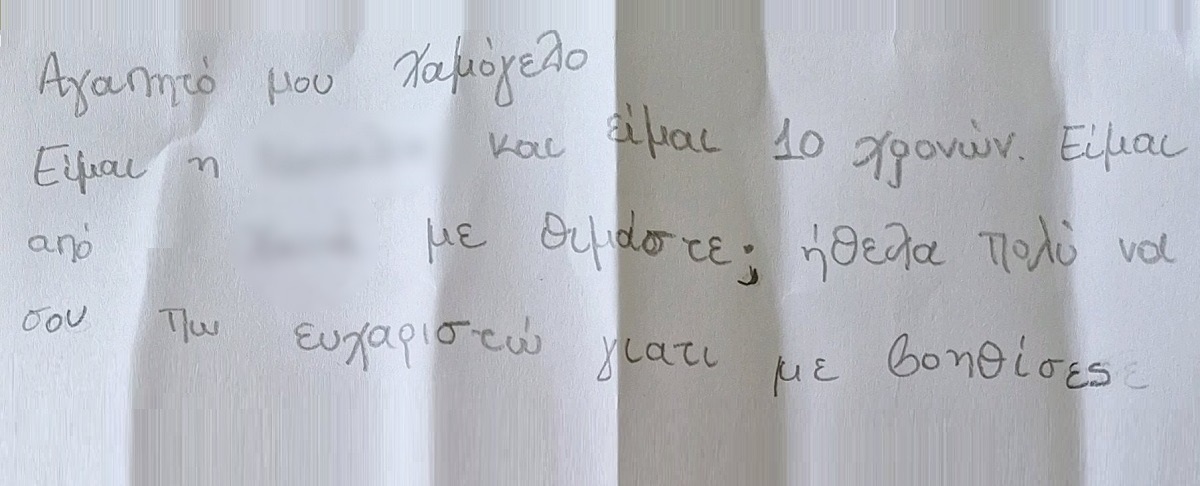 Αγαπητό μου Χαμόγελο
Είμαι η και είμαι 10 χρονών. Είμαι
από με θιμάστε; ήθελα πολύ να
σου πω ευχαριστώ γιατι με βοηθίσες